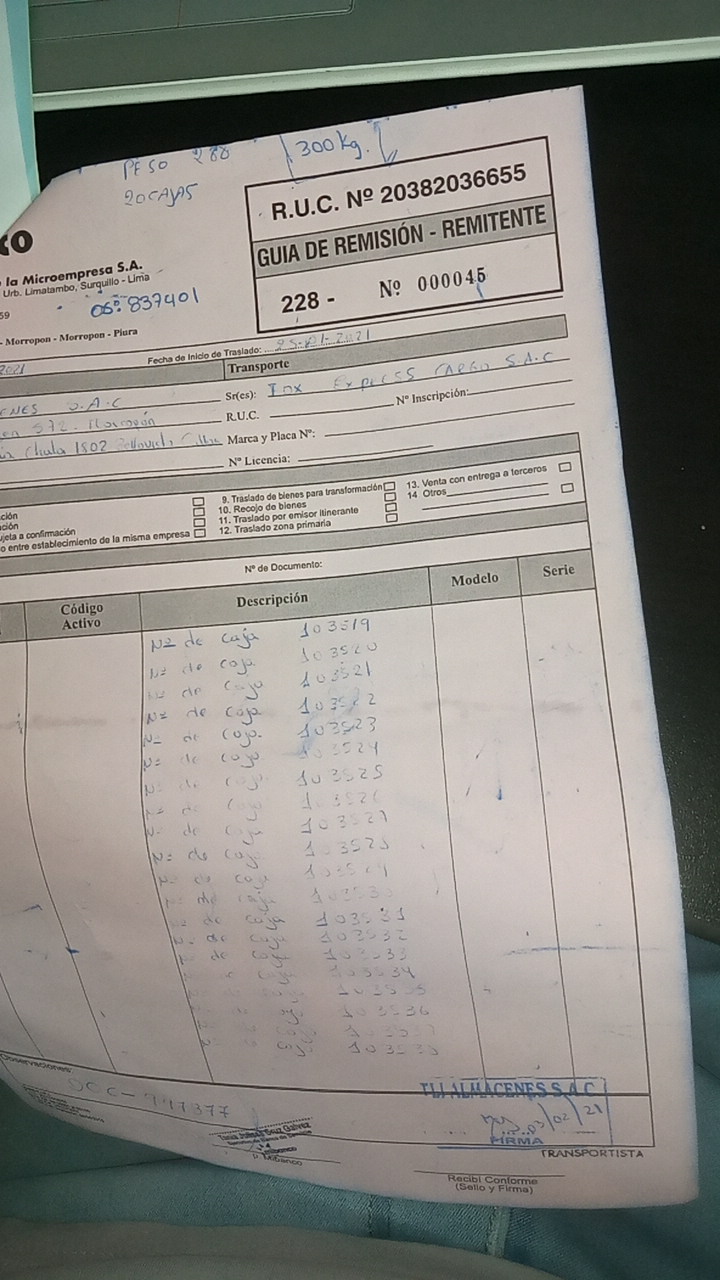 PESO 288 300 Kg.
20 CAJAS
R.U.C. Nº 20382036655
GUIA DE REMISIÓN - REMITENTE
228 - Nº 000045
la Microempresa S.A.
Urb. Limatambo, Surquillo - Lima
59
837401
- Morropon - Morropon - Piura
2021
Fecha de Inicio de Traslado: 25-01-2021
Transporte
ENES S.A.C
Sr(es): Inx Express CARGO S.A.C
572 - Morropón
R.U.C.
Nº Inscripción:
Chala 1802
Marca y Placa Nº:
Nº Licencia:
ción
ción
ujeta a confirmación
o entre establecimiento de la misma empresa
9. Traslado de bienes para transformación
10. Recojo de bienes
11. Traslado por emisor itinerante
12. Traslado zona primaria
13. Venta con entrega a terceros
14 Otros
Nº de Documento:
Código Activo
Descripción
Modelo
Serie
Nº de caja 103519
Nº de caja 103520
Nº de caja 103521
Nº de caja 103522
Nº de caja 103523
Nº de caja 103524
Nº de caja 103525
Nº de caja 103526
Nº de caja 103527
Nº de caja 103528
Nº de caja 103529
de caja 103530
de caja 103531
de caja 103532
de caja 103533
103534
103535
103536
103537
103538
Observaciones:
TLI ALMACENES S.A.C
03/02/21
FIRMA
TRANSPORTISTA
Recibí Conforme
(Sello y Firma)